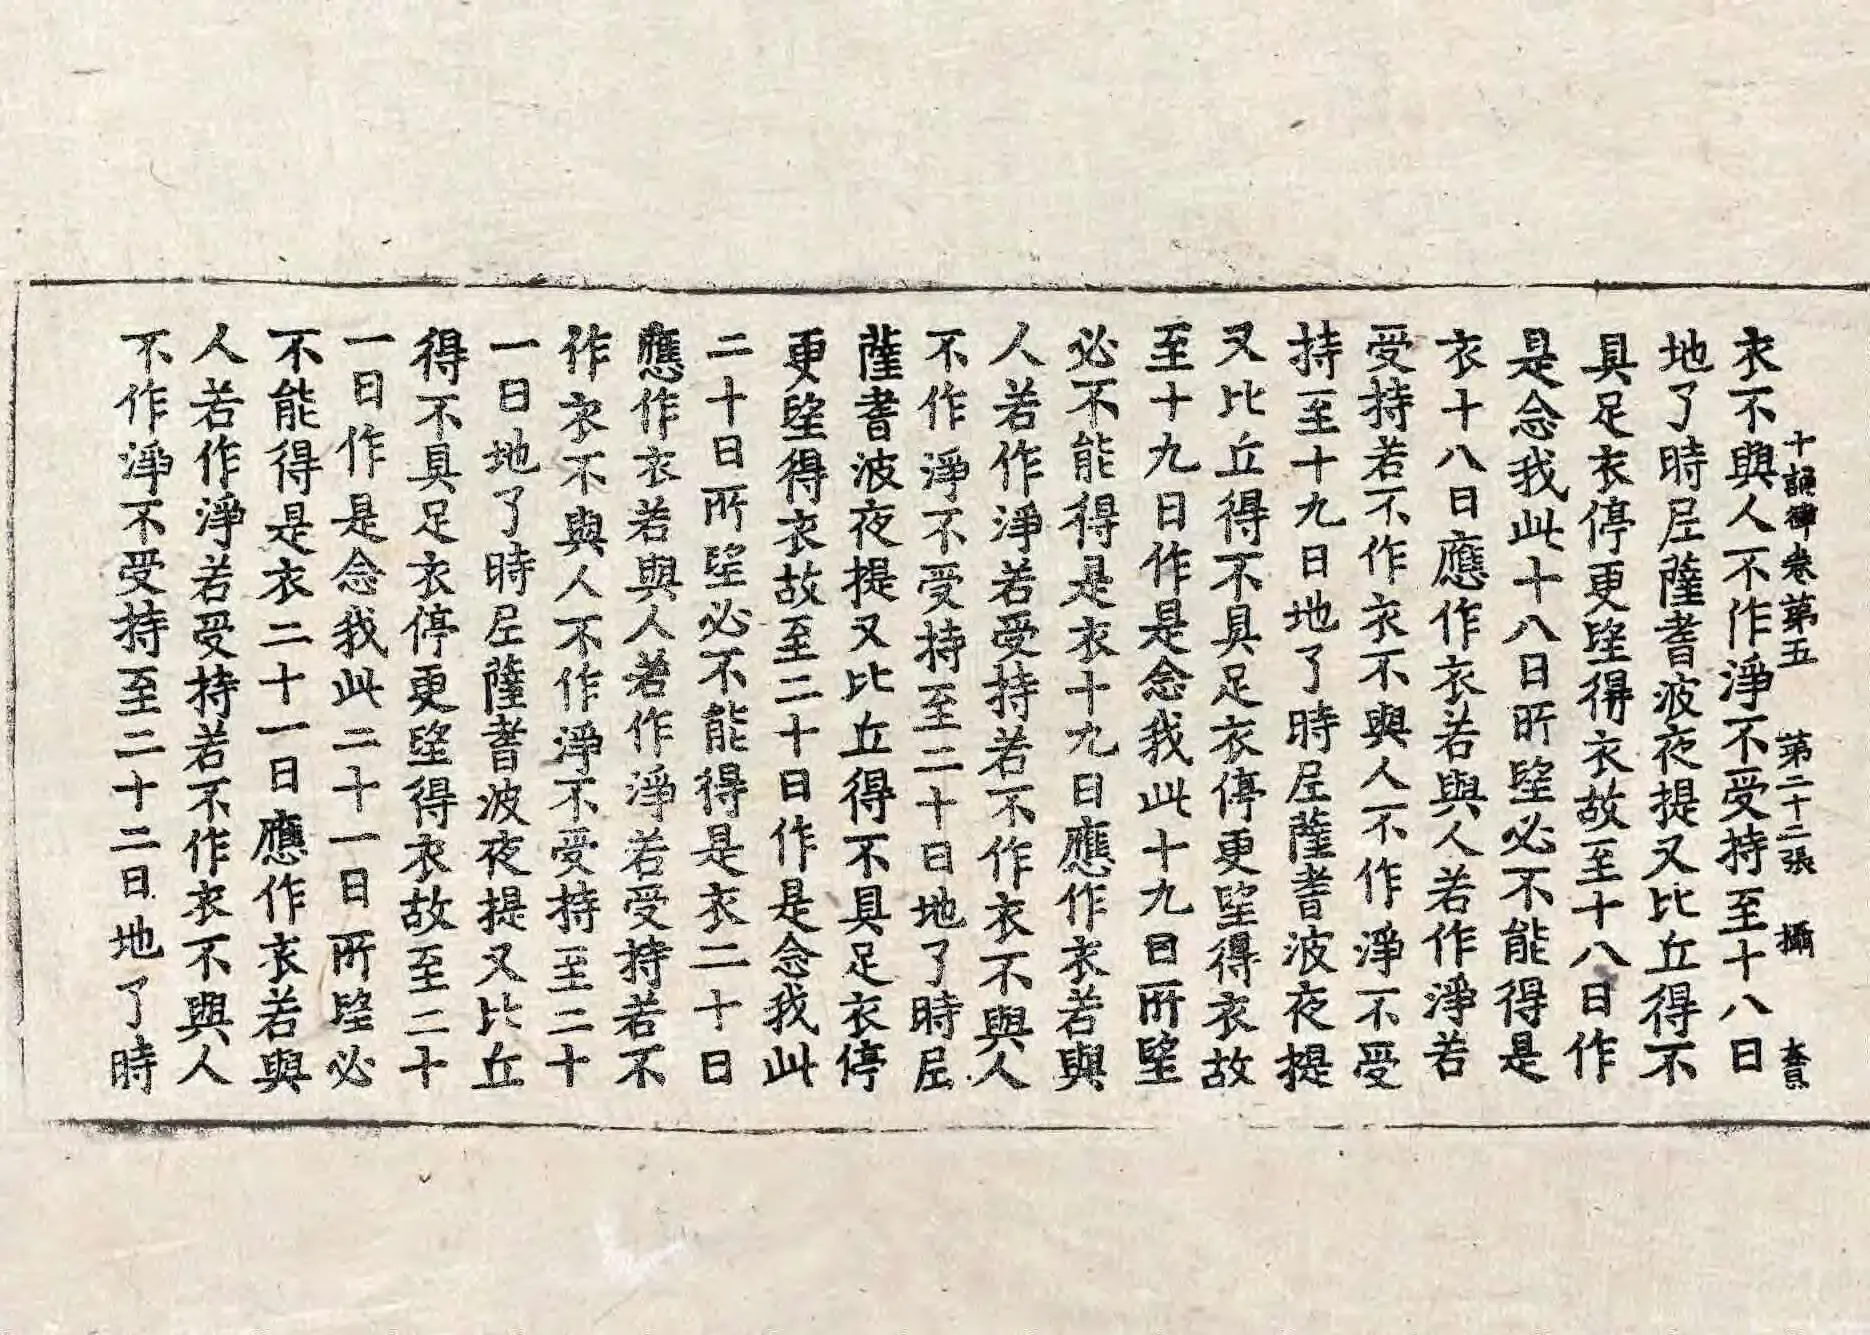 十誦律卷第五 第二十二張 攝
衣不與人不作淨不受持至十八日
地了時尼薩耆波夜提又比丘得不
具足衣停更望得衣故至十八日作
是念我此十八日所望必不能得是
衣十八日應作衣若與人若作淨若
受持若不作衣不與人不作淨不受
持至十九日地了時尼薩耆波夜提
又比丘得不具足衣停更望得衣故
至十九日作是念我此十九日所望
必不能得是衣十九日應作衣若與
人若作淨若受持若不作衣不與人
不作淨不受持至二十日地了時尼
薩耆波夜提又比丘得不具足衣停
更望得衣故至二十日作是念我此
二十日所望必不能得是衣二十日
應作衣若與人若作淨若受持若不
作衣不與人不作淨不受持至二十
一日地了時尼薩耆波夜提又比丘
得不具足衣停更望得衣故至二十
一日作是念我此二十一日所望必
不能得是衣二十一日應作衣若與
人若作淨若受持若不作衣不與人
不作淨不受持至二十二日地了時